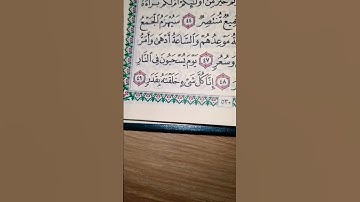 خَيْرٌ مِّنْ أُولَٰئِكُمْ أَمْ لَكُم بَرَاءَةٌ
جَمِيعٌ مُّنتَصِرٌ ٤٤ سَيُهْزَمُ الْجَمْعُ
مَوْعِدُهُمْ وَالسَّاعَةُ أَدْهَىٰ وَأَمَرُّ
وَسُعُرٍ ٤٧ يَوْمَ يُسْحَبُونَ فِي النَّارِ
٤٨ إِنَّا كُلَّ شَيْءٍ خَلَقْنَاهُ بِقَدَرٍ ٤٩
٥٣٠